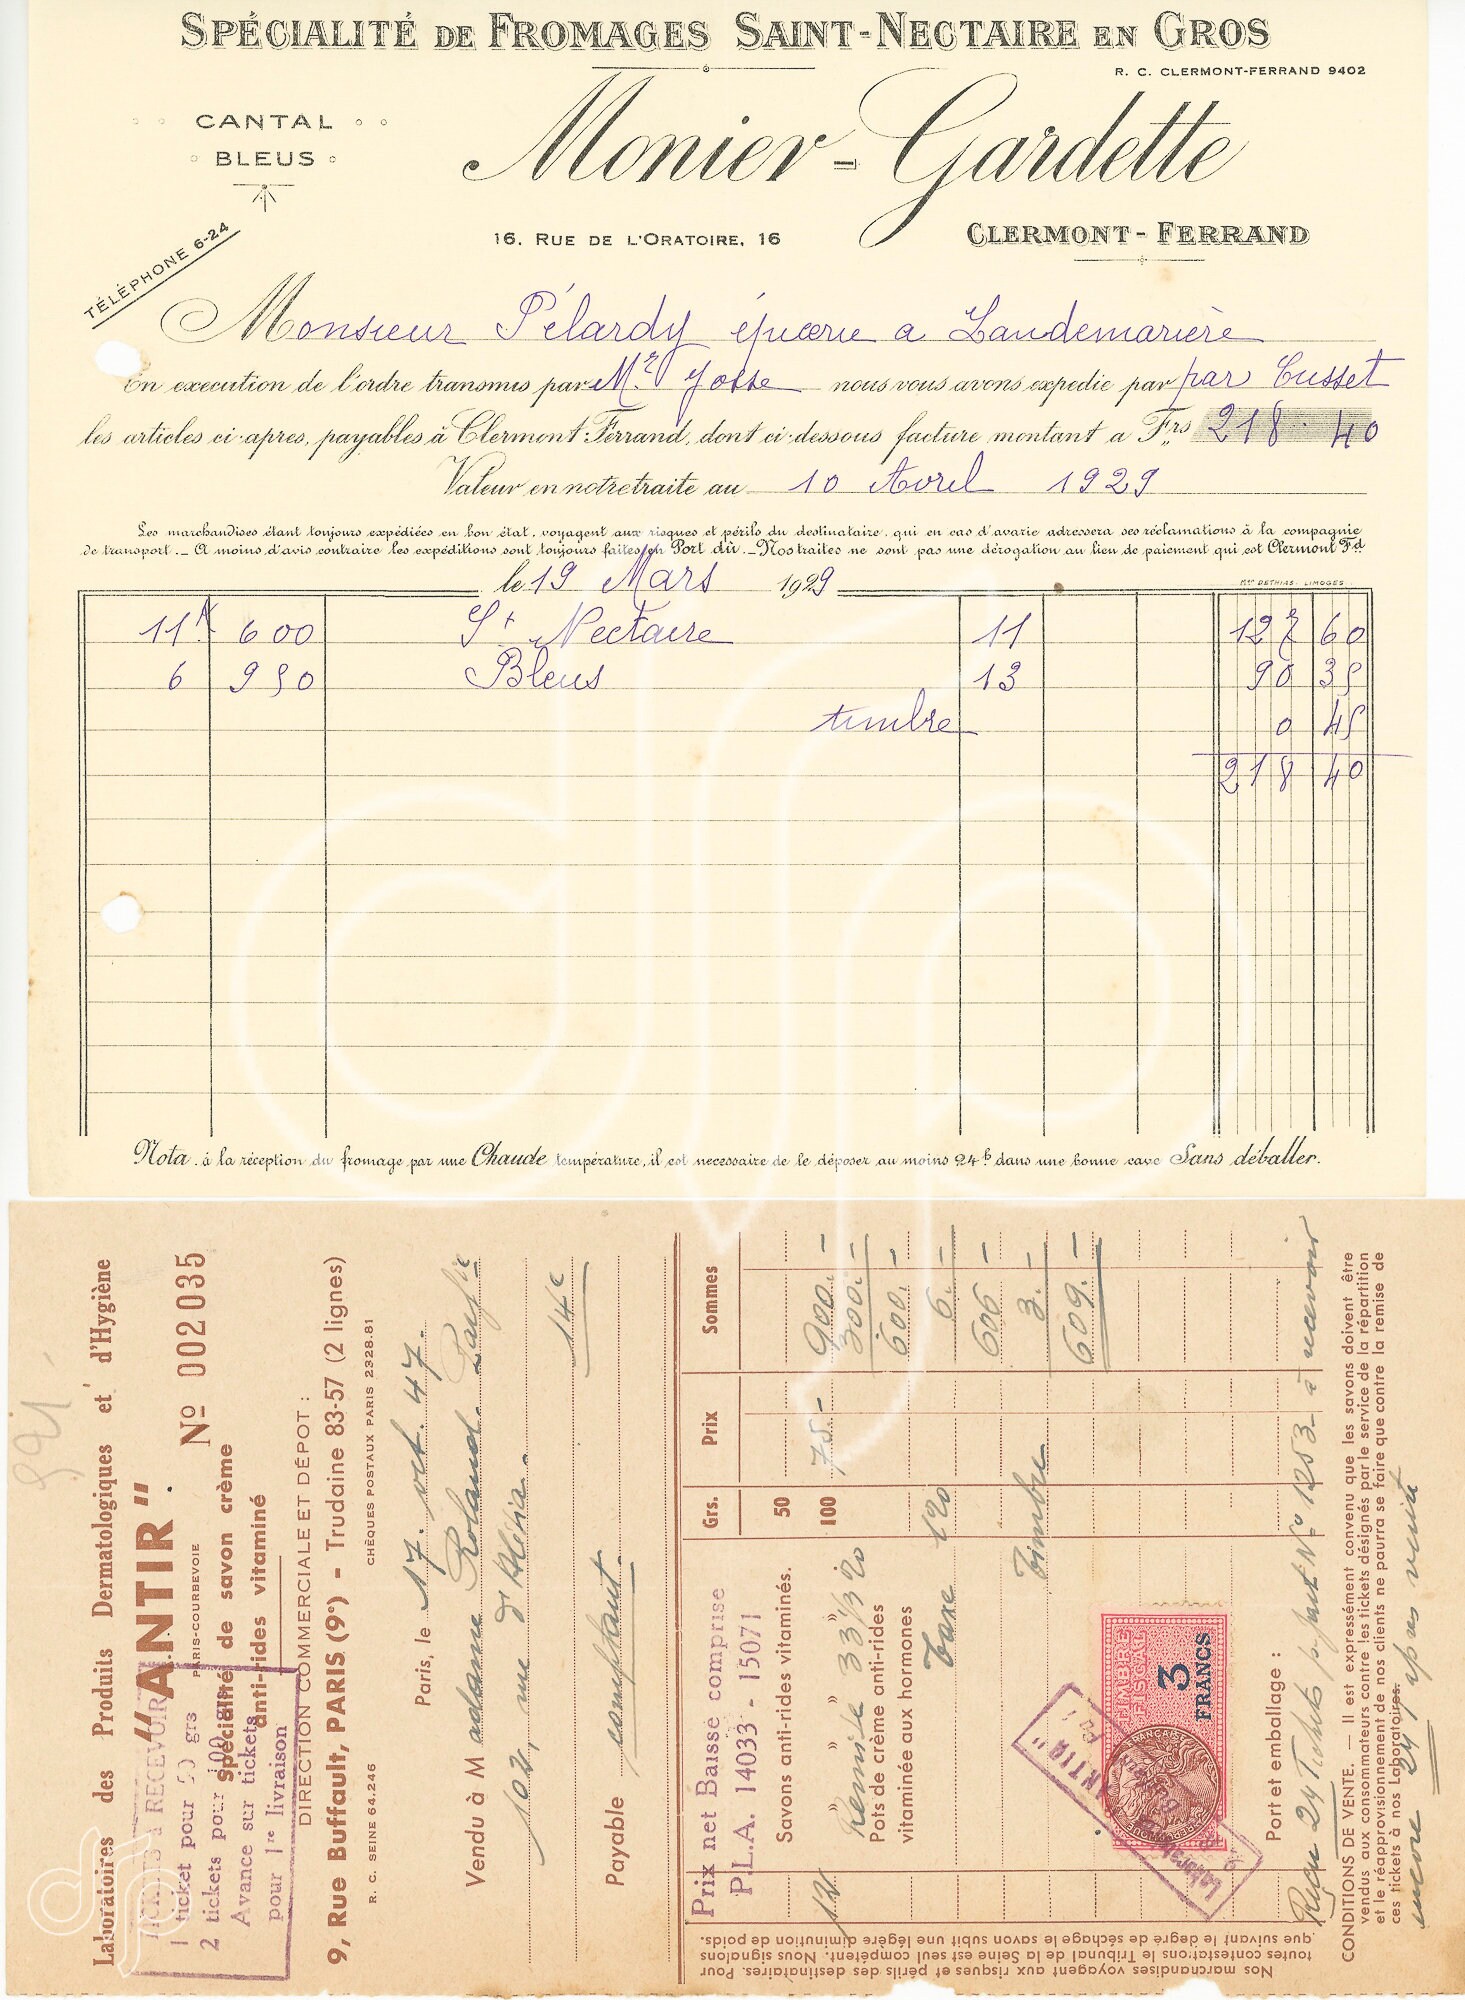 SPÉCIALITÉ DE FROMAGES SAINT-NECTAIRE EN GROS
R. C. CLERMONT-FERRAND 9402
CANTAL
BLEUS
Monier-Gardette
TÉLÉPHONE 6-24
16, RUE DE L'ORATOIRE, 16
CLERMONT-FERRAND
Monsieur Pélardy épicerie a
En execution de l'ordre transmis par Mr Josse nous vous avons expedié par par Cusset
les articles ci-après, payables à Clermont-Ferrand, dont ci-dessous facture montant a Frs 218.40
Valeur en notre traite au 10 Avril 1929
Les marchandises étant toujours expédiées en bon état, voyagent aux risques et périls du destinataire, qui en cas d'avarie adressera ses réclamations à la compagnie
de transport. - A moins d'avis contraire les expéditions sont toujours faites en Port dû. - Nos traites ne sont pas une dérogation au lieu de paiement qui est Clermont Fd
le 19 Mars 1929
DETHIAS - LIMOGES
11k 600 St Nectaire 11 127 60
6 950 Bleus 13 90 35
timbre 0 45
218 40
Nota. à la réception du fromage par une Chaude température, il est necessaire de le déposer au moins 24h dans une bonne cave Sans déballer.
Laboratoires des Produits Dermatologiques et d'Hygiène
"ANTIR"
PARIS-COURBEVOIE
No 002035
spécialité de savon crème
anti-rides vitaminé
TICKETS A RECEVOIR
1 ticket pour 50 grs
2 tickets pour 100 grs
Avance sur tickets
pour 1re livraison
DIRECTION COMMERCIALE ET DÉPOT :
9, Rue Buffault, PARIS (9e) - Trudaine 83-57 (2 lignes)
R. C. SEINE 64.246
CHÈQUES POSTAUX PARIS 2328.81
Paris, le 17. oct. 47.
Vendu à Madame Roland
102, rue d'Alésia.
14e
Payable comptant.
Prix net Baisse comprise
P.L.A. 14033 - 15071
Grs. Prix Sommes
Savons anti-rides vitaminés.
50
12 " " " 100 75.- 900.-
Remise 33 1/3 % 300.-
Pots de crème anti-rides
vitaminée aux hormones
600.-
Taxe 1% 6.-
606 -
Timbre 3.-
609.-
TIMBRE FISCAL
3 FRANCS
Port et emballage :
Reçu 24 Tickets 1253 - à recevoir
encore 24 après vente
CONDITIONS DE VENTE. - Il est expressément convenu que les savons doivent être
vendus aux consommateurs contre les tickets désignés par le service de la répartition
et le réapprovisionnement de nos clients ne pourra se faire que contre la remise de
ces tickets à nos Laboratoires.
Nos marchandises voyagent aux risques et périls des destinataires. Pour
toutes contestations le Tribunal de la Seine est seul compétent. Nous signalons
que suivant le degré de séchage le savon subit une légère diminution de poids.